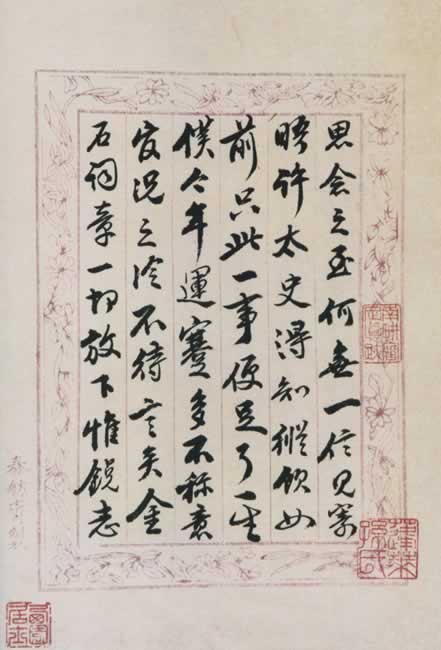 思念之至何無一信見寄
晤許太史得知縱飲如
前只此一事便足了一生
僕今年運蹇多不称意
官況之冷不待言矣金
石詞章一切放下惟銳志
蓬萊孫氏